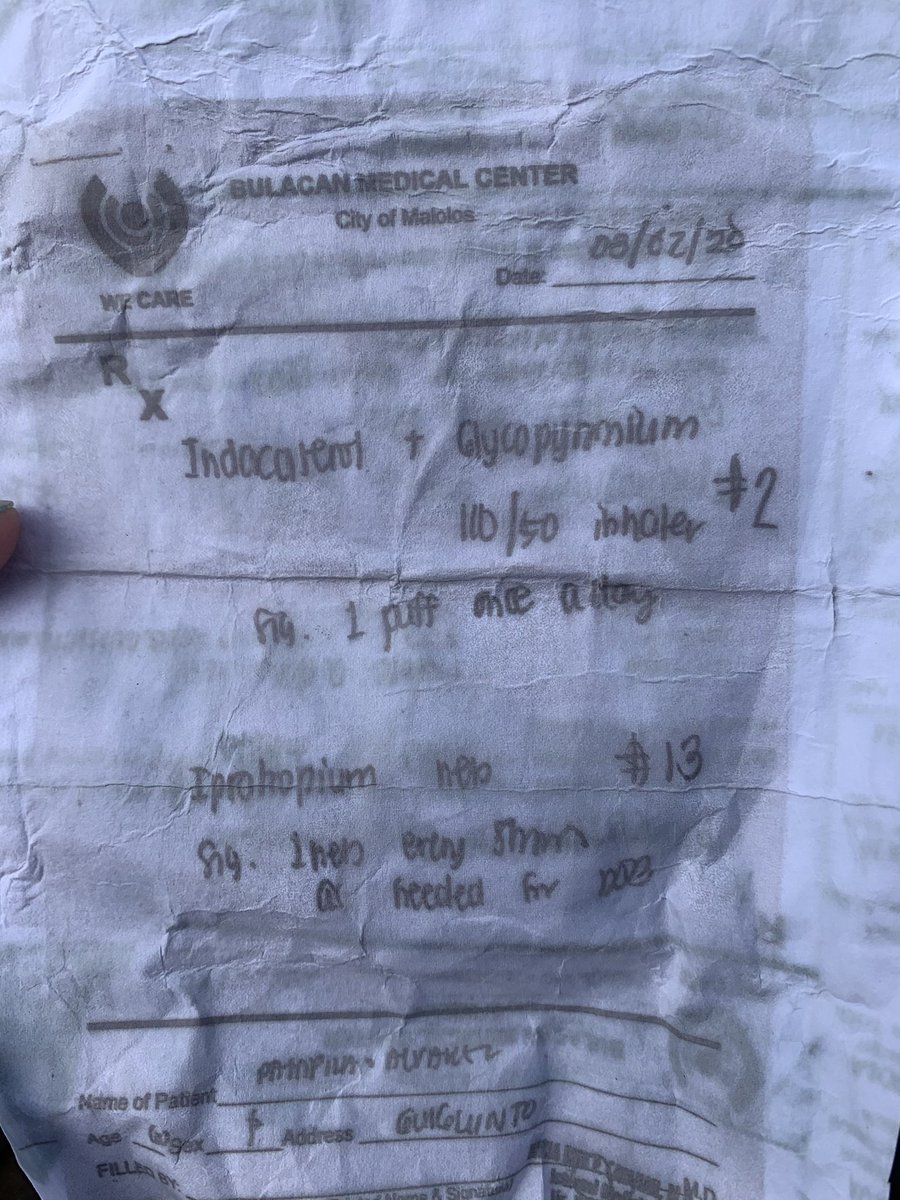 BULACAN MEDICAL CENTER
City of Malolos
Date: 03/02/20
WE CARE
R
X
Indacaterol + Glycopyrronium
110/50 inhaler #2
Sig. 1 puff once a day
Ipratropium neb #13
Sig. 1 neb every
as needed for
Name of Patient
Age Sex F Address GUIGUINTO
FILLED BY: